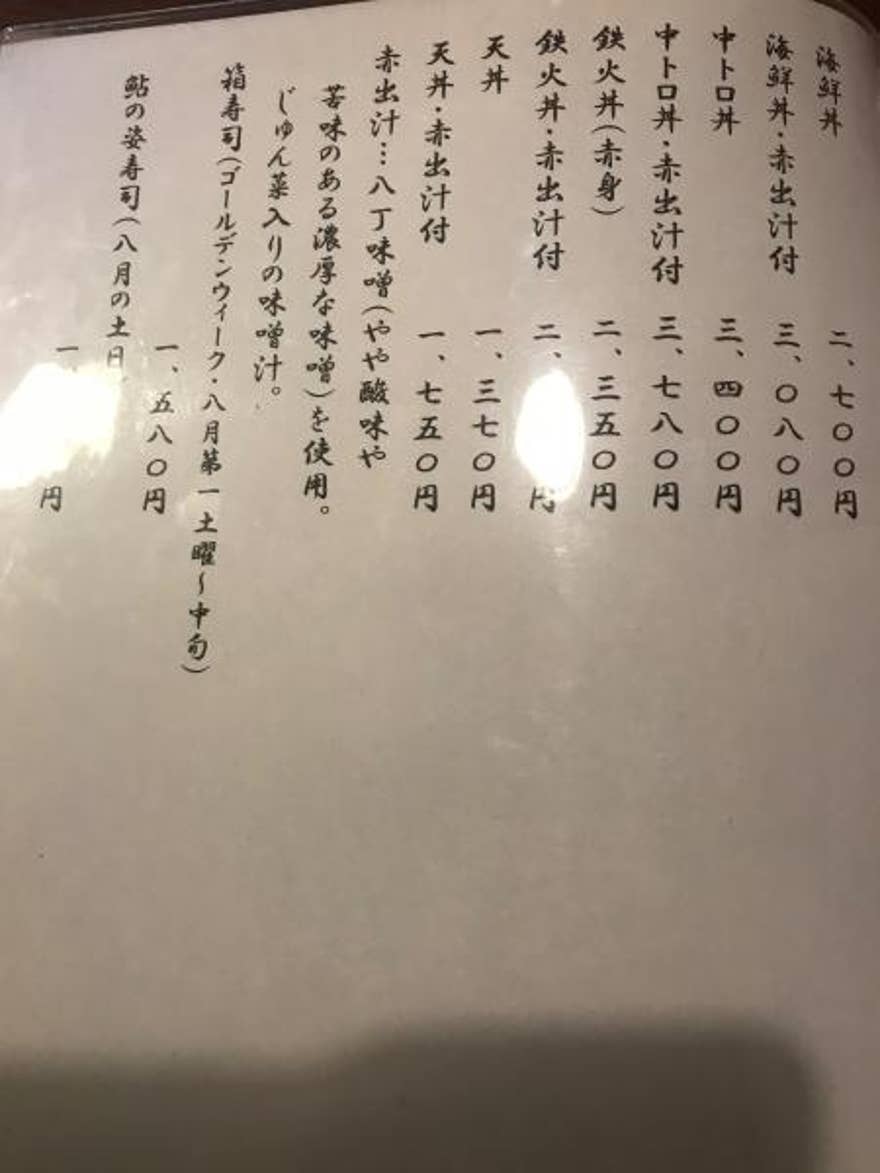 海鮮丼 二、七〇〇円
海鮮丼・赤出汁付 三、〇八〇円
中トロ丼 三、四〇〇円
中トロ丼・赤出汁付 三、七八〇円
鉄火丼(赤身) 二、三五〇円
鉄火丼・赤出汁付 二、 円
天丼 一、三七〇円
天丼・赤出汁付 一、七五〇円
赤出汁…八丁味噌(やや酸味や
苦味のある濃厚な味噌)を使用。
じゅん菜入りの味噌汁。
箱寿司(ゴールデンウィーク・八月第一土曜〜中旬)
一、五八〇円
鮎の姿寿司(八月の土日
一、 円